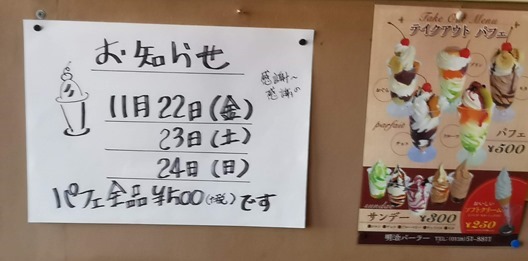 お知らせ
感謝〜
感謝の
11月22日(金)
23日(土)
24日(日)
パフェ全品¥500(税込)です
Take Out Menu
テイクアウト パフェ
parfait
パフェ
¥500
sundae
サンデー ¥300
おいしい
ソフトクリーム
¥250
明治パーラー